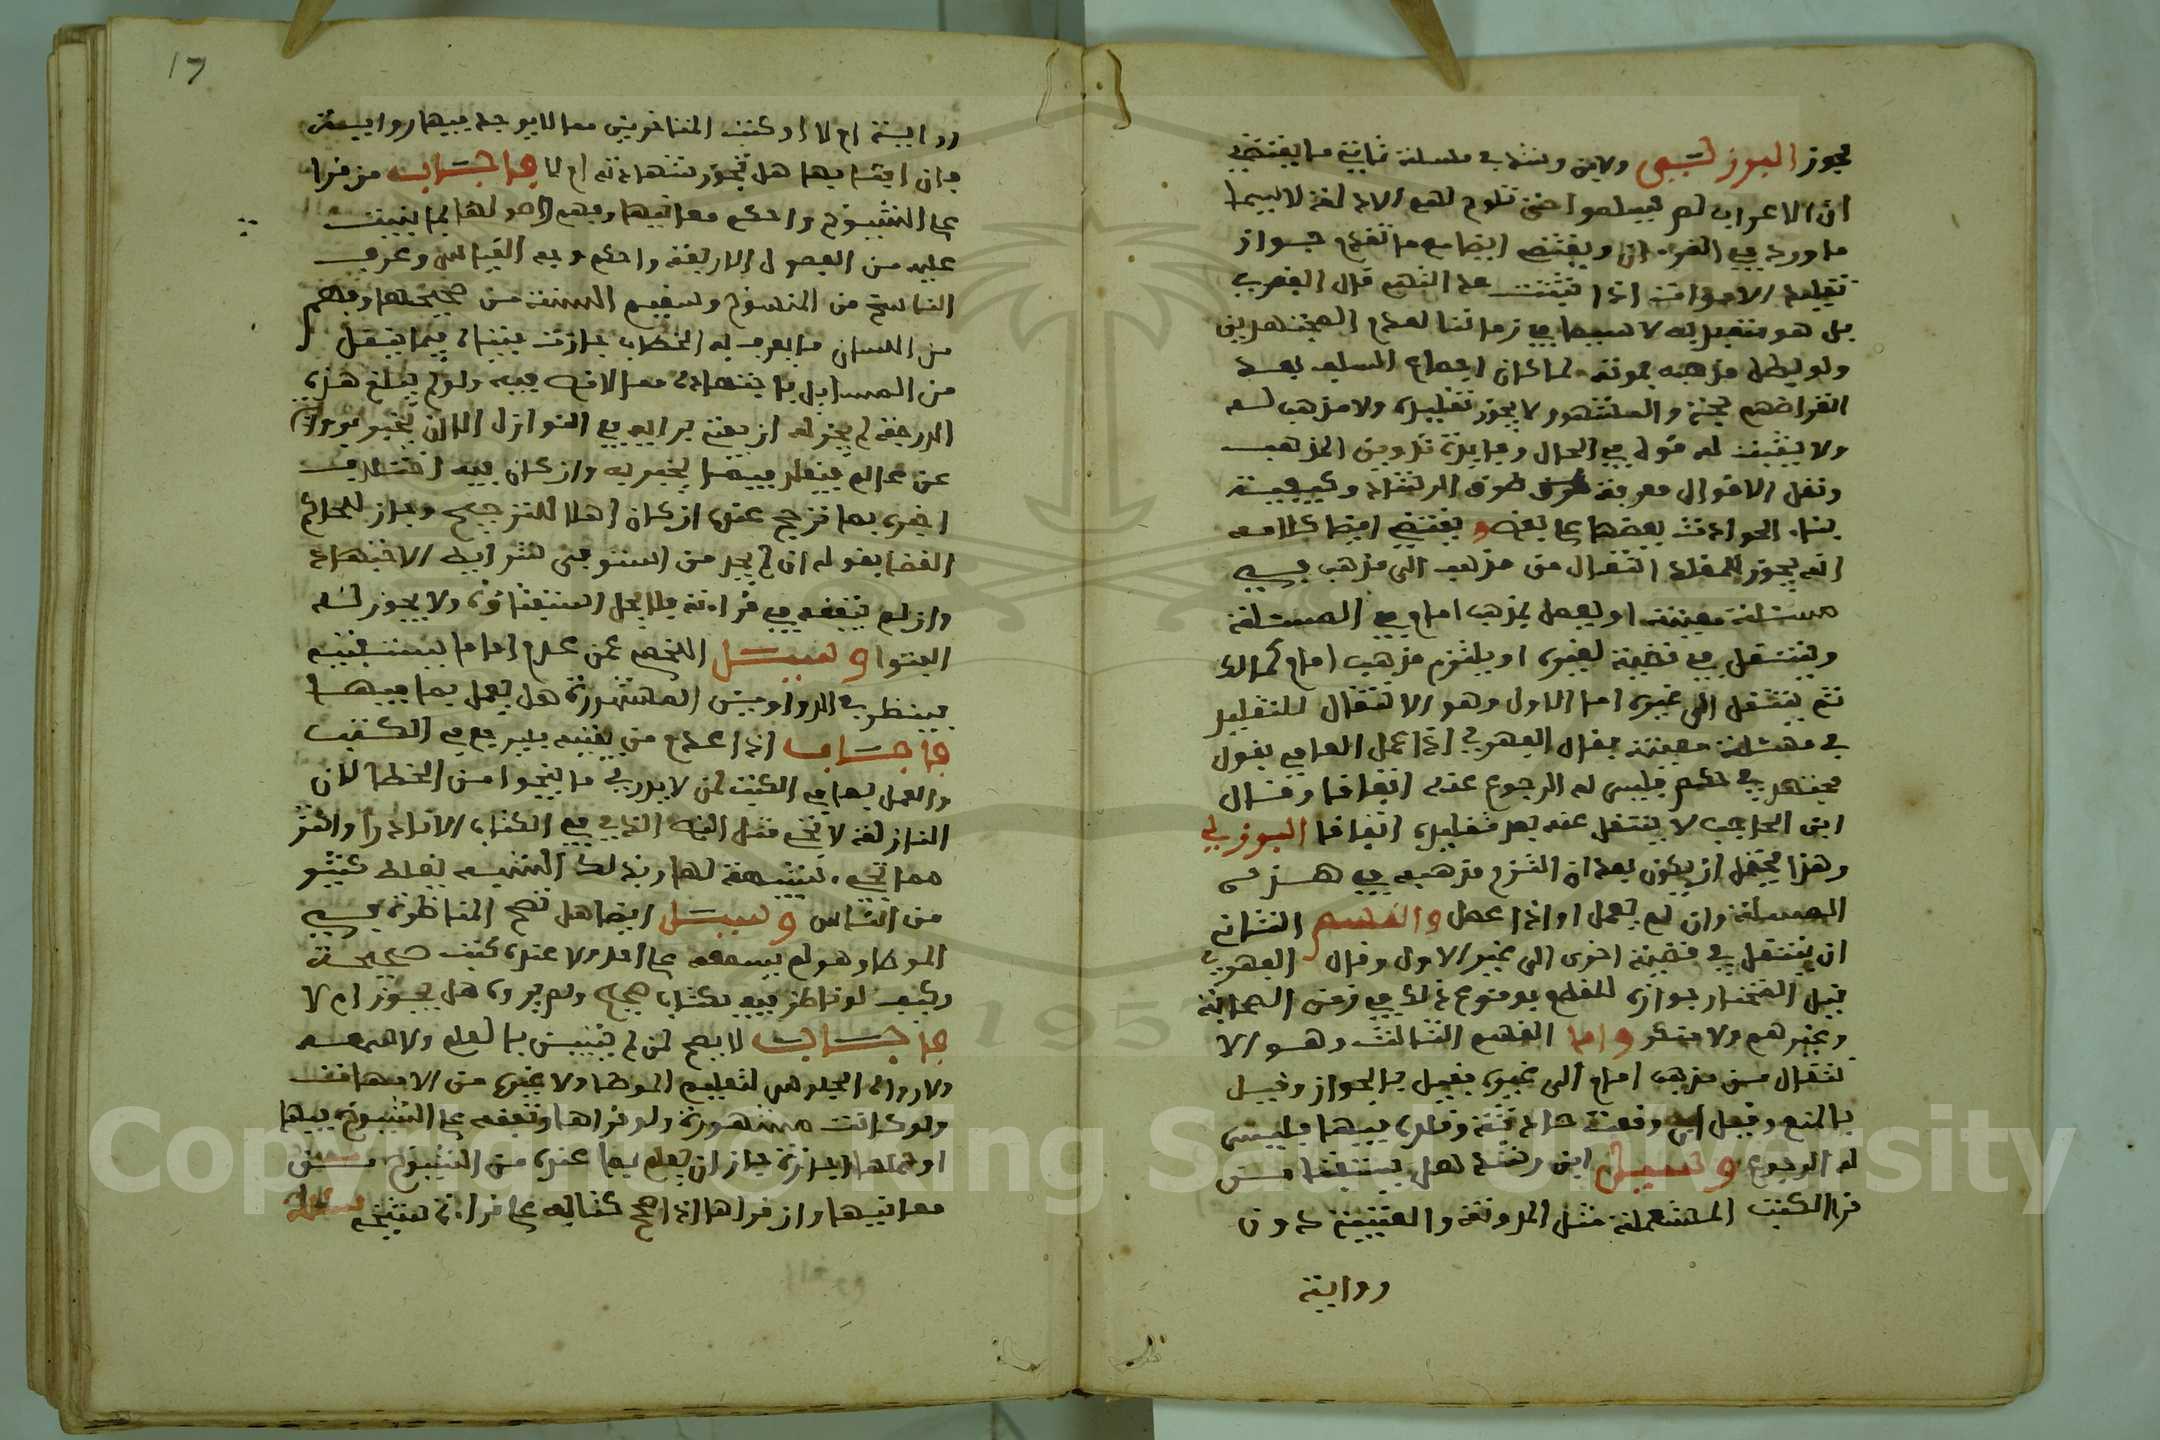 يجوز البرزلي ولابن رشد في مسئلة ثانية ما يقتضي
ان الاعراب لم يسلموا حتى تلوح لهم الادلة لا سيما
ما ورد في القرءان ويقتضي ايضا مع ما تقدم جواز
تقليد الاموات اذا ثبتت عدالتهم قال الفهري
بل هو متعين لاسيما في زماننا لعدم المجتهدين
ولو بطل مذهبه بموته لما كان اجماع السلف بعد
انقراضهم حجة والمشهور لا يجوز تقليده ولا مذهب له
ولا يثبت له قول في الحال وفايدة تدوين المذهب
ونقل الاقوال معرفة طرق الرشاد وكيفية
بناء الحوادث بعضها على بعض ويقتضي ايضا كلامه
انه يجوز للمقلد انتقال من مذهب الى مذهب في
مسئلة معينة او يعمل بمذهب امام في المسئلة
وينتقل في قضية لغيره او يلتزم مذهب امام كمالك
ثم ينتقل الى غيره اما الاول وهو الانتقال للتقليد
في مسئلة معينة فقال الفهري اذا عمل العامي بقول
مجتهد في حكم فليس له الرجوع عنه اتفاقا وقال
ابن الحاجب لا ينتقل عنه بعد تقليده اتفاقا البرزلي
وهذا يحتمل ان يكون بعد ان التزم مذهبه في هذه
المسئلة وان لم يعمل او اذا عمل والقسم الثاني
ان ينتقل في قضية اخرى الى غير الاول وقال الفهري
قيل المختار جوازه للقطع بوقوع ذلك في زمن الصحابة
وغيرهم ولا منكر واما القسم الثالث وهو الا
نتقال من مذهب امام الى غيره فقيل بالجواز وقيل
بالمنع وقيل ان وقعت حادثة وقلده فيها فليس
له الرجوع وسئل ابن رشد هل يستفتا من
قرا الكتب المستعملة مثل المدونة والعتبية دون
رواية
17
رواية ام لا او كتب المتاخرين مما لا يوجد فيها رواية
فان افتا بها هل تجوز شهادته ام لا فاجاب من قرا
على الشيوخ واحكم معانيها وفهم اصولها بما ينبت
عليه من الفصول الاربعة واحكم وجه القياس وعرف
الناسخ من المنسوخ وسقيم السنة من صحيحها وفهم
من اللسان ما يعرف به الخطاب جازت فتياه فيما ينقل
من المسايل باجتهاده مما لا نص فيه ولم يبلغ هذه
الدرجة لم يجز له ان يفتي برايه في النوازل الا ان يخبر برواية
عن عالم فيقلد فيها يخبر به وان كان فيه اختلاف
اخبر بما ترجح عنده ان كان اهلا للترجيح وجاز للحاكم
القضا بقوله ان لم يجد من استوفى شرايط الاجتهاد
وان لم يتفقه في قراءته فلا يحل استفتاؤه ولا يجوز له
الفتوا وسئل اللخمي عمن عدم اماما يستفتيه
فينظر في الدواوين المشهورة هل يعمل بما فيها
فاجاب اذا عدم من يفتيه فليرجع في الكتب
والعمل بما في الكتب لمن لا يدري ما ينجوا من الخطا لان
النازلة لا تجي مثل النص الذي في الكتاب الا نادرا واكثر
مما تجي شبيهة لها وبذلك التشبيه يغلط كثير
من الناس وسئل ايضا هل تصح المناظرة في
الموطا وهو لم يسمعه على احد ولا عنده كتب صحيحة
وكيف لو ناظر فيه بكتاب صحيح ولم يروه هل يجوز ام لا
فاجاب لا يصح لمن لم يتبين بالعلم ولا سمعه
ولا رواه الجلوس لتعليم الموطا ولا غيره من الامهات
ولو كانت مشهورة ولو قراها وتفقه على الشيوخ فيها
او حملها اجازة جاز ان يعلم بما عنده من الشيوخ من
معانيها وان قراها اذا صح كتابه على قراءة شيخه